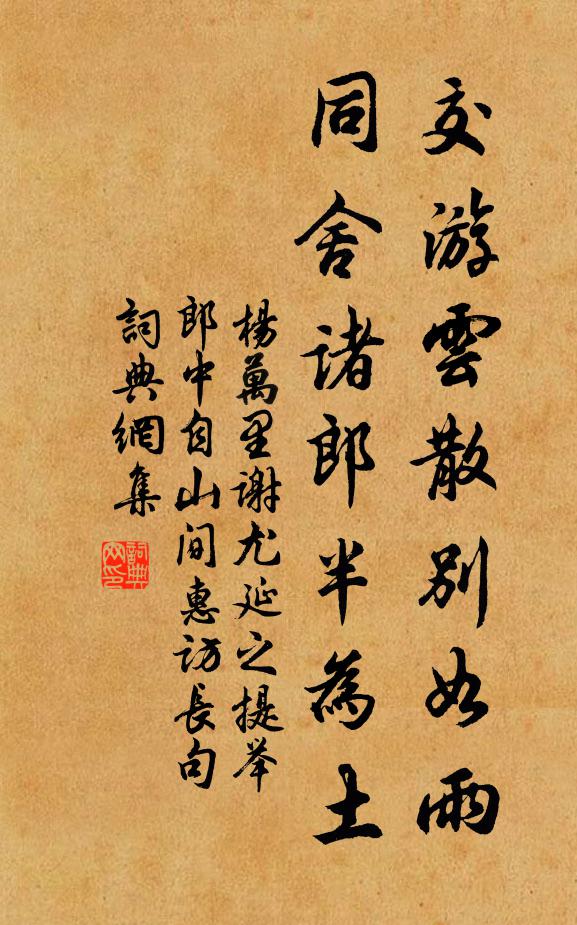 交游雲散別如雨
同舍諸郎半為土
楊萬里謝尤延之提举
郎中自山间惠訪長句
詞典網集
詞典网印